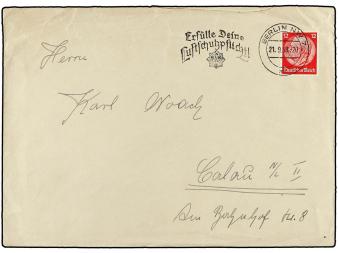 Erfülle Deine
Luftschutzpflicht!
BERLIN NW 7
21.9.38.-20
12 12
Deutsches Reich
Herrn
Karl Noack
Calau N/L II
Am Bahnhof Nr. 8